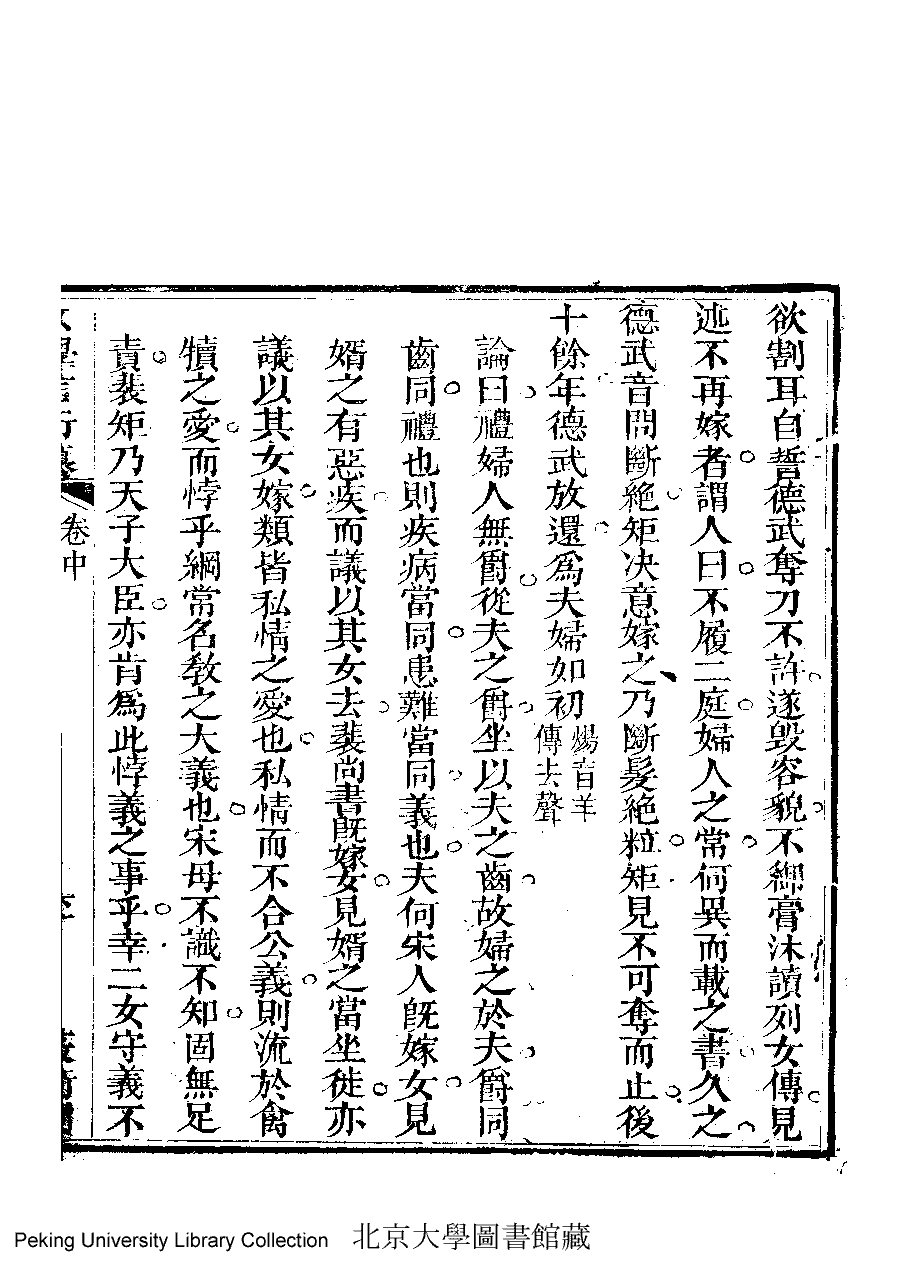 欲割耳自誓德武奪刀不許遂毀容貌不御膏沐讀列女傳見
述不再嫁者謂人曰不履二庭婦人之常何異而載之書久之
德武音問斷絕矩决意嫁之乃斷髮絕粒矩見不可奪而止後
十餘年德武放還爲夫婦如初
煬音羊
傳去聲
論曰禮婦人無爵從夫之爵坐以夫之齒故婦之於夫爵同
齒同禮也則疾病當同患難當同義也夫何宋人旣嫁女見
婿之有惡疾而議以其女去裴尚書旣嫁女見婿之當坐徙亦
議以其女嫁類皆私情之愛也私情而不合公義則流於禽
犢之愛而悖乎綱常名敎之大義也宋母不識不知固無足
責裴矩乃天子大臣亦肯爲此悖義之事乎幸二女守義不
卷中
Peking University Library Collection 北京大學圖書館藏